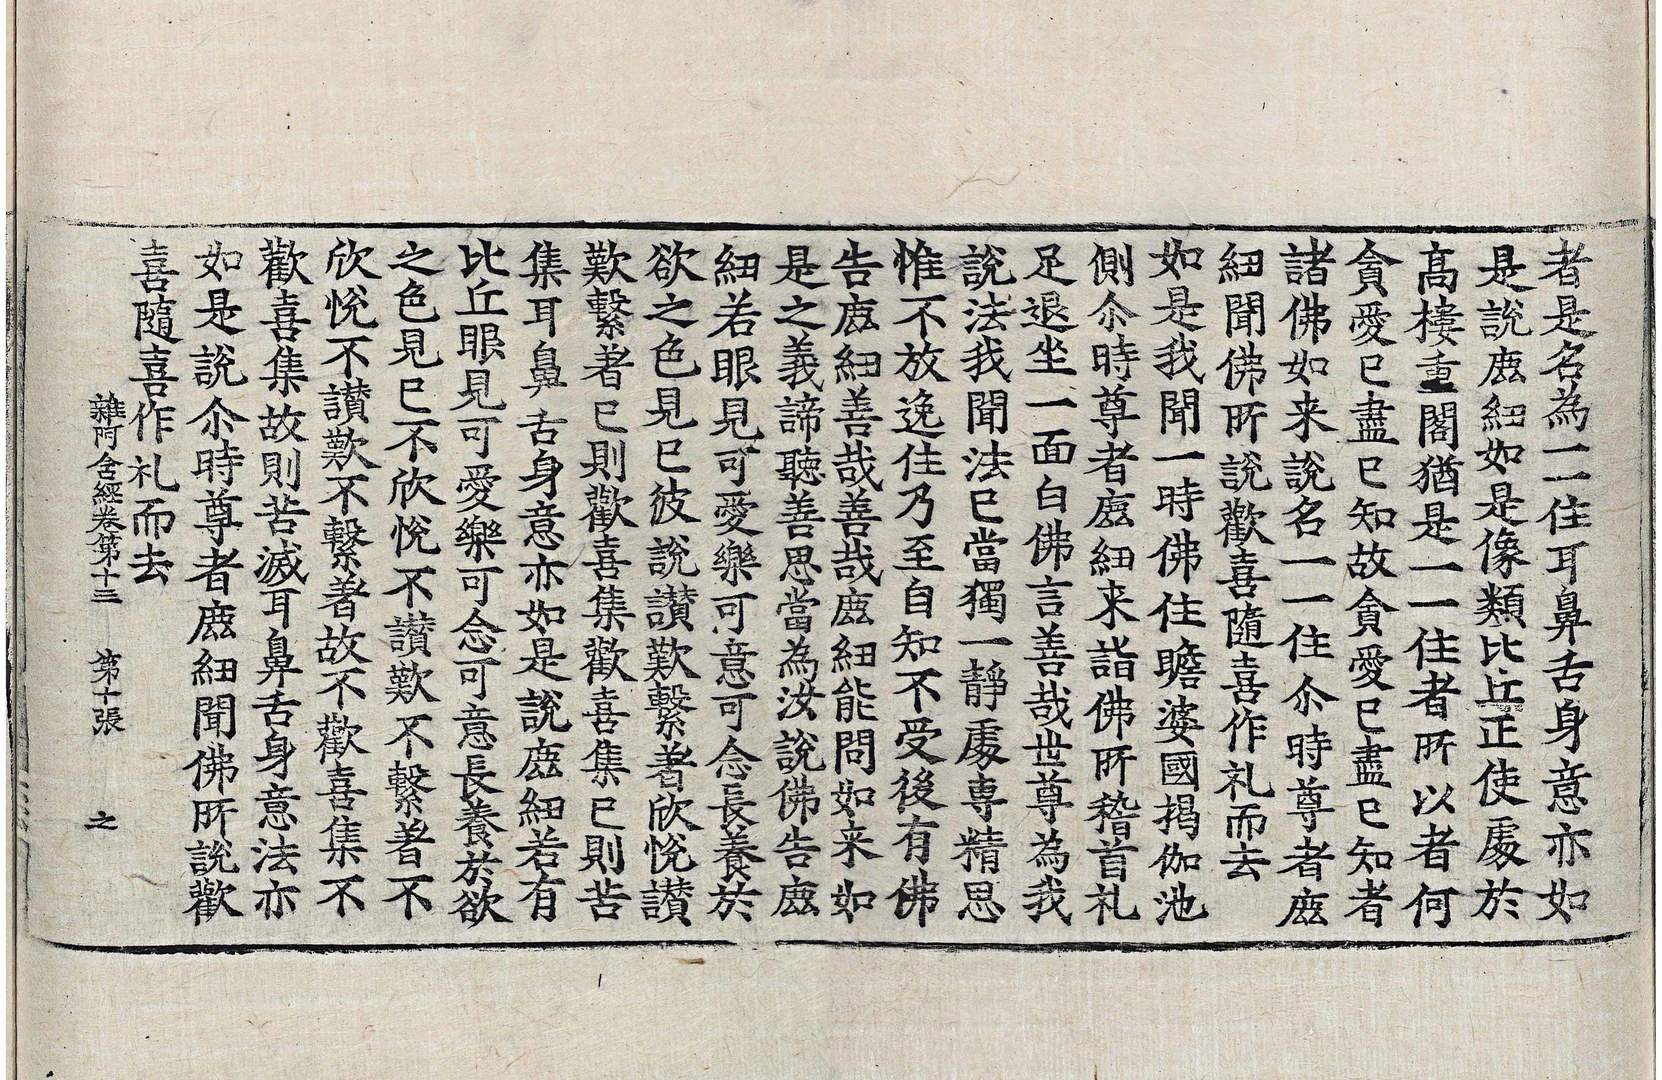 者是名為一一住耳鼻舌身意亦如
是說鹿紐如是像類比丘正使處於
髙樓重閣猶是一一住者所以者何
貪愛已盡已知故貪愛已盡已知者
諸佛如来說名一一住尒時尊者鹿
紐聞佛所說歡喜隨喜作礼而去
如是我聞一時佛住瞻婆國揭伽池
側尒時尊者鹿紐来詣佛所稽首礼
足退坐一面白佛言善哉世尊為我
說法我聞法已當獨一靜處専精思
惟不放逸住乃至自知不受後有佛
告鹿紐善哉善哉鹿紐能問如来如
是之義諦聽善思當為汝說佛告鹿
紐若眼見可愛樂可意可念長養於
欲之色見已彼說讃歎繫著欣恱讃
歎繫著已則歡喜集歡喜集已則苦
集耳鼻舌身意亦如是說鹿紐若有
比丘眼見可愛樂可念可意長養於欲
之色見已不欣恱不讃歎不繫著不
欣恱不讃歎不繫著故不歡喜集不
歡喜集故則苦滅耳鼻舌身意法亦
如是說尒時尊者鹿紐聞佛所說歡
喜隨喜作礼而去
雜阿含經卷第十三 第十張 之